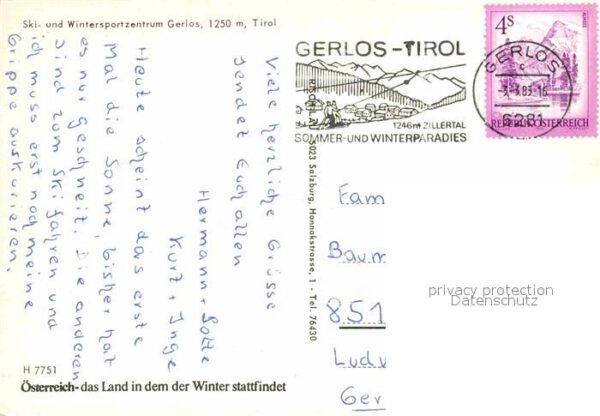 Ski- und Wintersportzentrum Gerlos, 1250 m, Tirol
Viele herzliche Grüsse
sendet Euch allen
Hermann + Lotte
Kurt + Inge
Heute scheint das erste
Mal die Sonne, bisher hat
es nur geschneit. Die anderen
sind zum Skifahren und
ich muss erst noch meine
Grippe auskurieren.
H 7751
Österreich - das Land in dem der Winter stattfindet
5023 Salzburg, Hannakstrasse, 1 - Tel. 76430
GERLOS-TIROL
1246m ZILLERTAL
SOMMER-UND WINTERPARADIES
GERLOS
c
6281
4S
REPUBLIK ÖSTERREICH
Fam
Baum
851
Ludw
Ger
privacy protection
Datenschutz